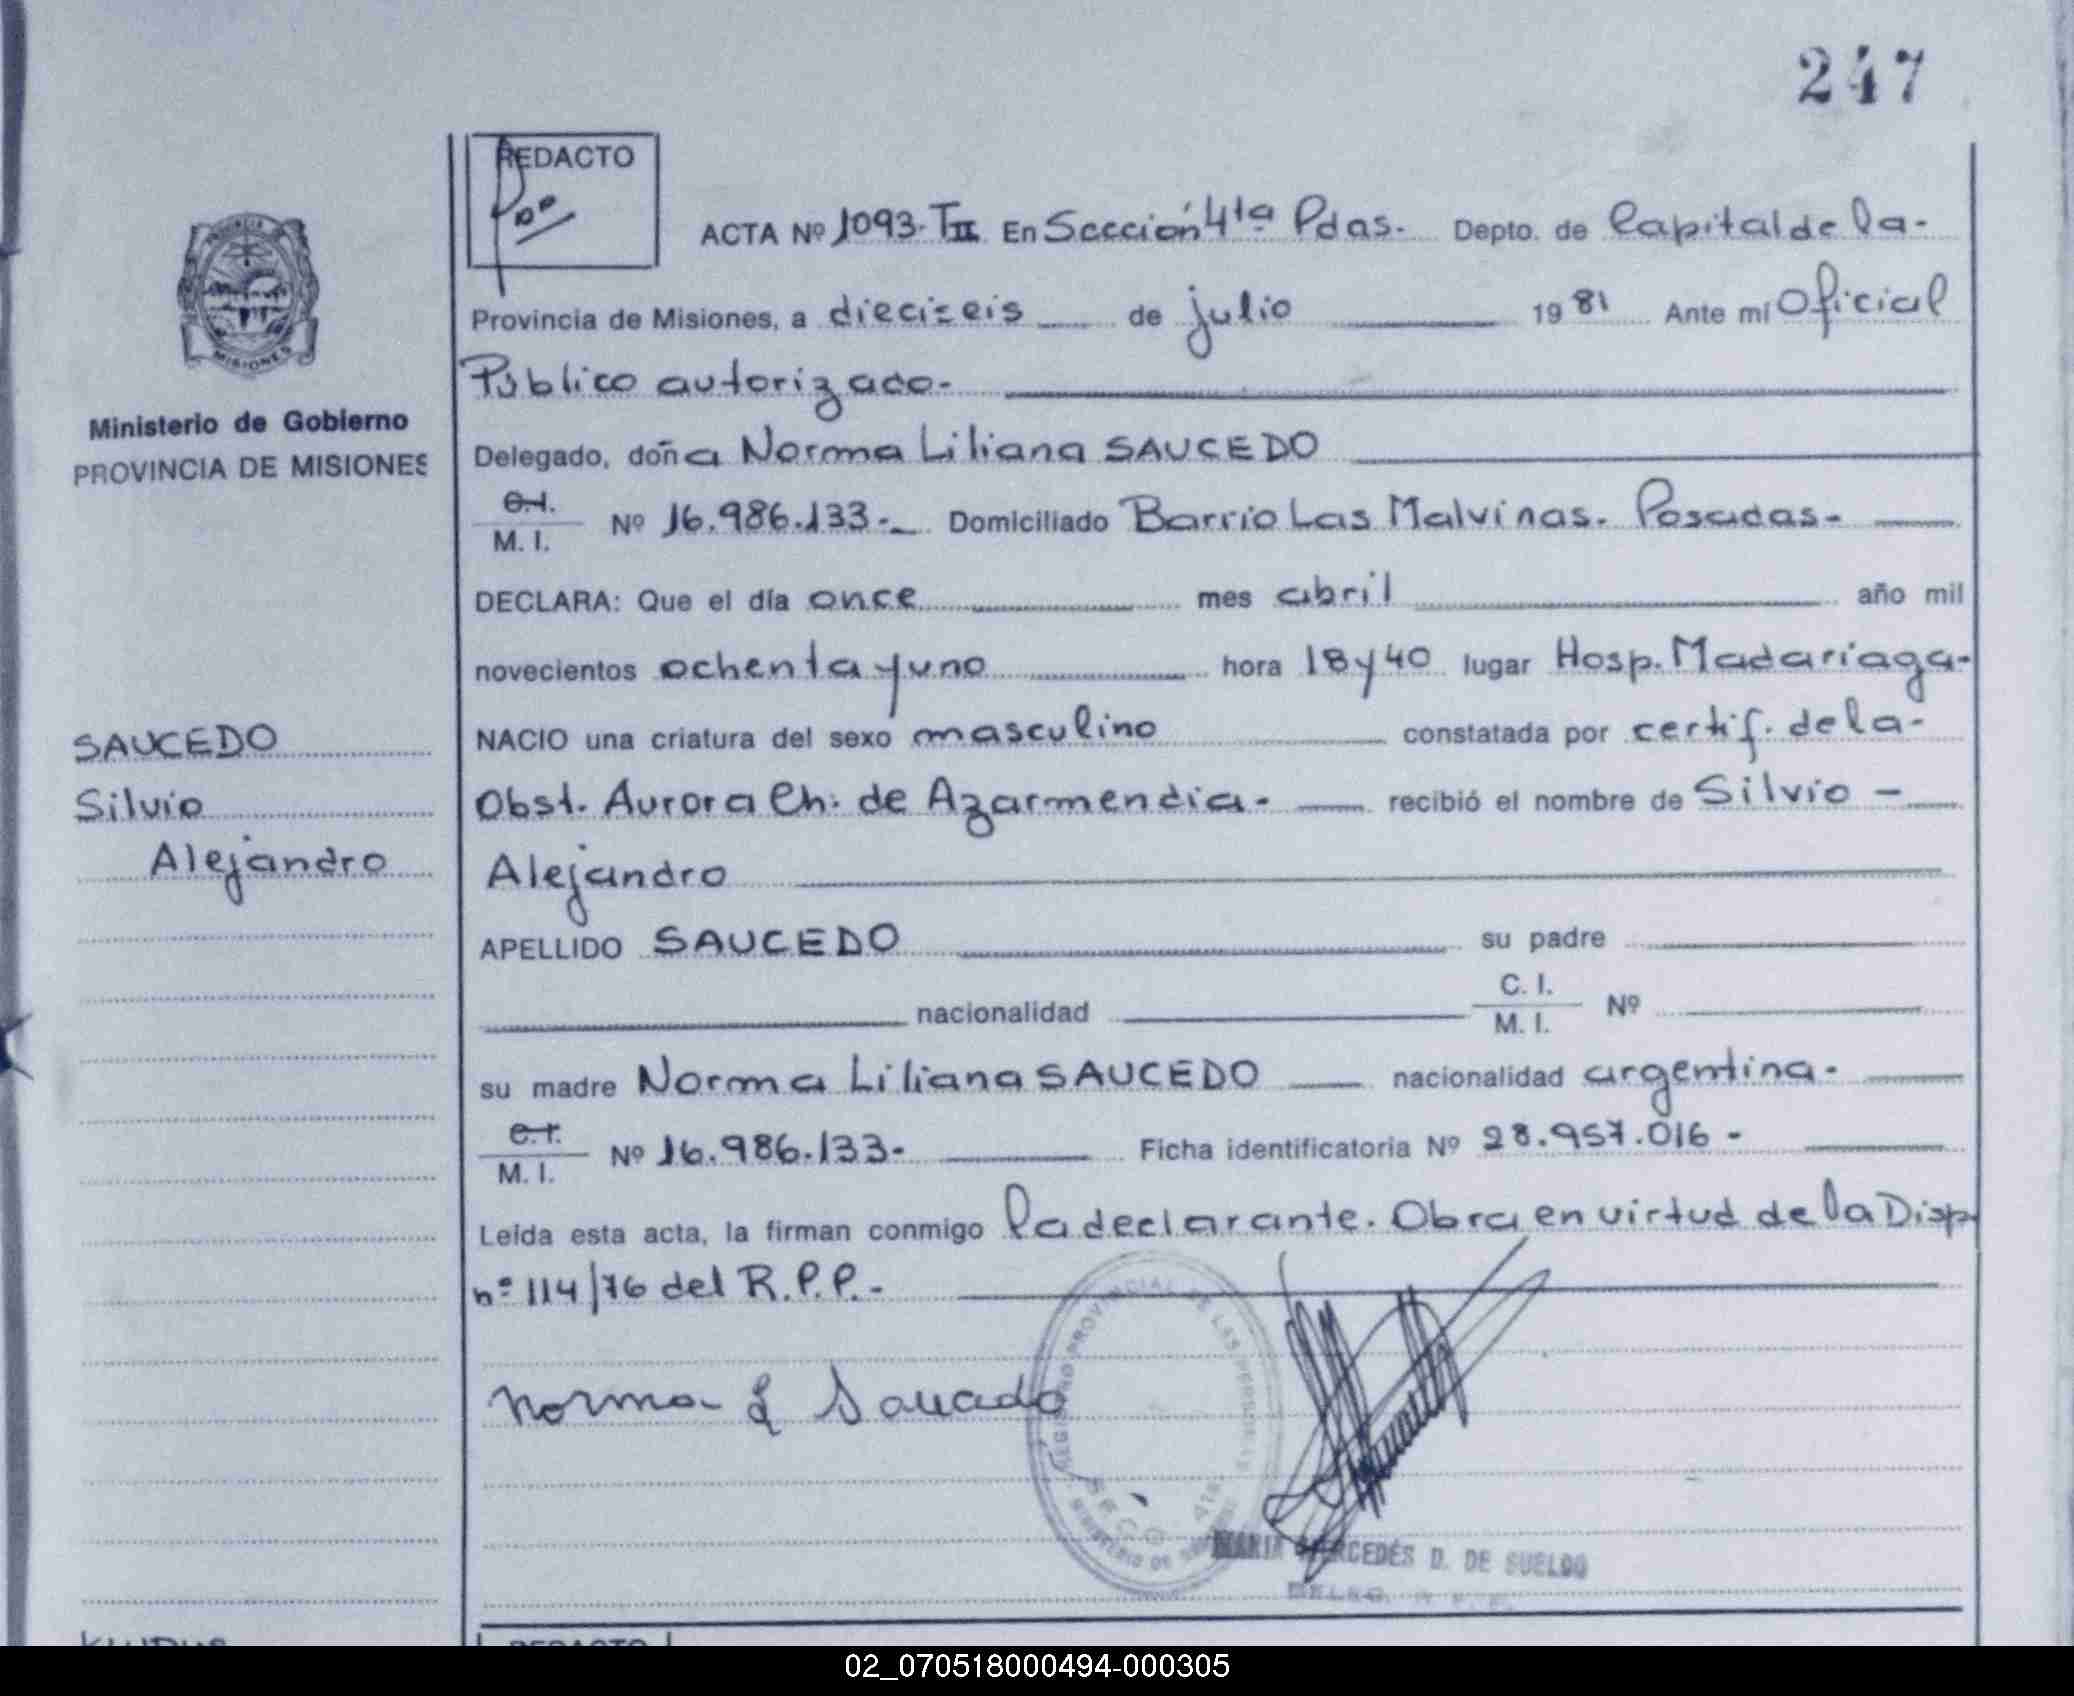 247
REDACTO
ACTA Nº 1093. TII En Sección 4ta Pdas. Depto. de Capital de la-
Provincia de Misiones, a dieciseis de julio 19 81 Ante mí Oficial
Público autorizado.-
Ministerio de Gobierno
PROVINCIA DE MISIONES
MISIONES
Delegado, doña Norma Liliana SAUCEDO
C.I.
M. I. Nº 16.986.133.- Domiciliado Barrio Las Malvinas. Posadas.-
DECLARA: Que el día once mes abril año mil
novecientos ochenta y uno hora 18 y 40 lugar Hosp. Madariaga-
SAUCEDO
Silvio
Alejandro
NACIO una criatura del sexo masculino constatada por certif. de la-
Obst. Aurora Ch. de Azarmendia.- recibió el nombre de Silvio -
Alejandro
APELLIDO SAUCEDO su padre
nacionalidad C. I.
M. I. Nº
su madre Norma Liliana SAUCEDO nacionalidad argentina.-
C.I.
M. I. Nº 16.986.133- Ficha identificatoria Nº 28.957.016 -
Leída esta acta, la firman conmigo la declarante. Obra en virtud de la Disp
nº 114/76 del R.P.P.-
Norma L Saucedo
REGISTRO PROVINCIAL DE LAS PERSONAS
MINISTERIO DE
MARIA MERCEDES D. DE SUELDO
REDACTO
02_070518000494-000305